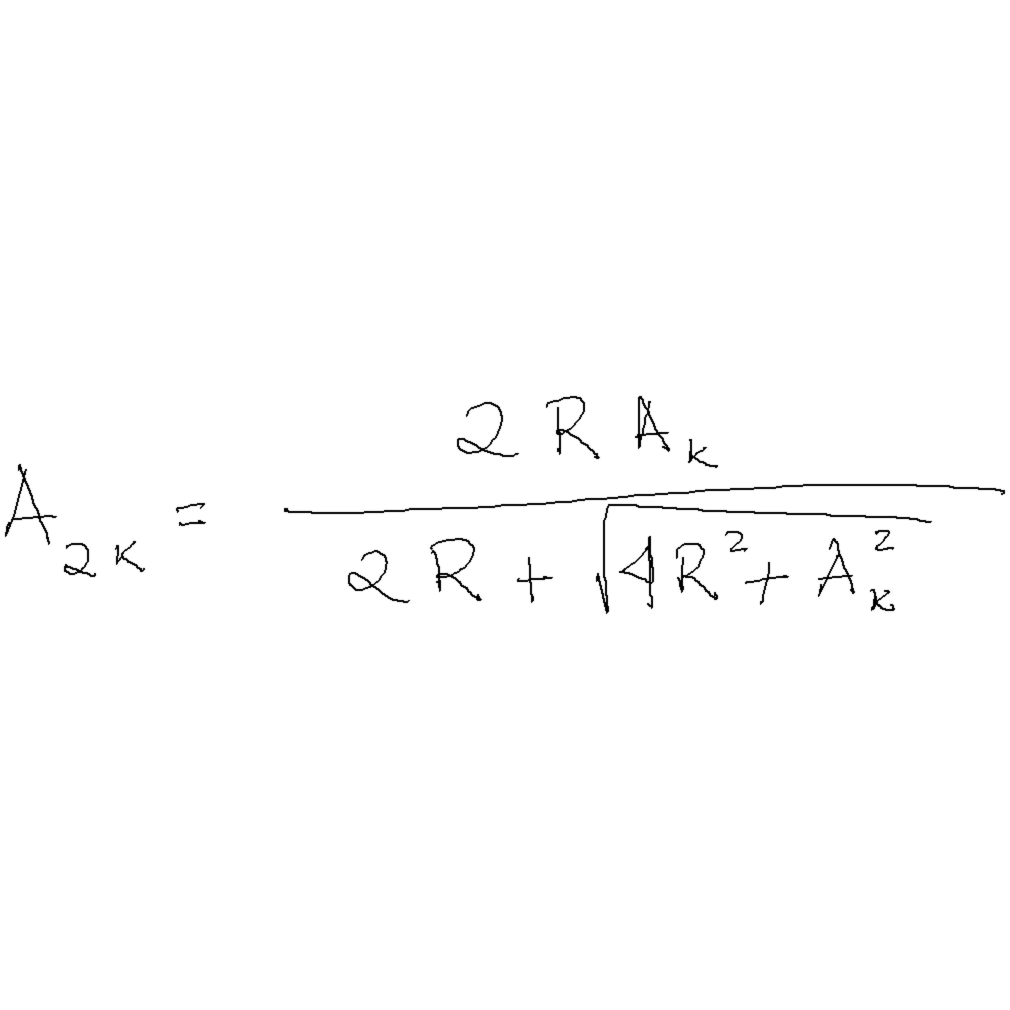 A_{2K} = \frac{2 R A_K}{2 R + \sqrt{4 R^2 + A_K^2}}